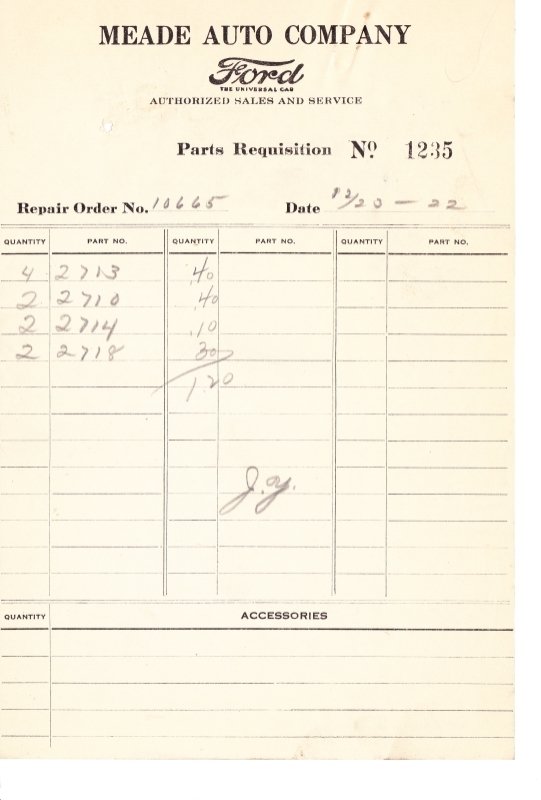 MEADE AUTO COMPANY
Ford
THE UNIVERSAL CAR
AUTHORIZED SALES AND SERVICE
Parts Requisition No 1235
Repair Order No. 10665 Date 12/23 - 22
QUANTITY PART NO. QUANTITY PART NO. QUANTITY PART NO.
4 2713 .40
2 2710 .40
2 2714 .10
2 2718 30
1.20
J.Y.
QUANTITY ACCESSORIES